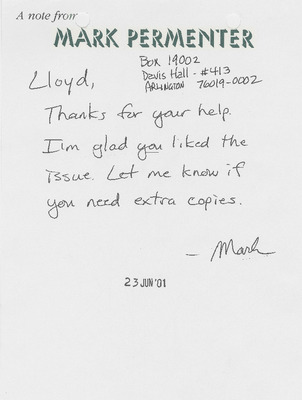 A note from
MARK PERMENTER
Box 19002
Davis Hall - #413
ARLINGTON 76019-0002
Lloyd,
Thanks for your help.
I'm glad you liked the
issue. Let me know if
you need extra copies.
- Mark
23 JUN '01